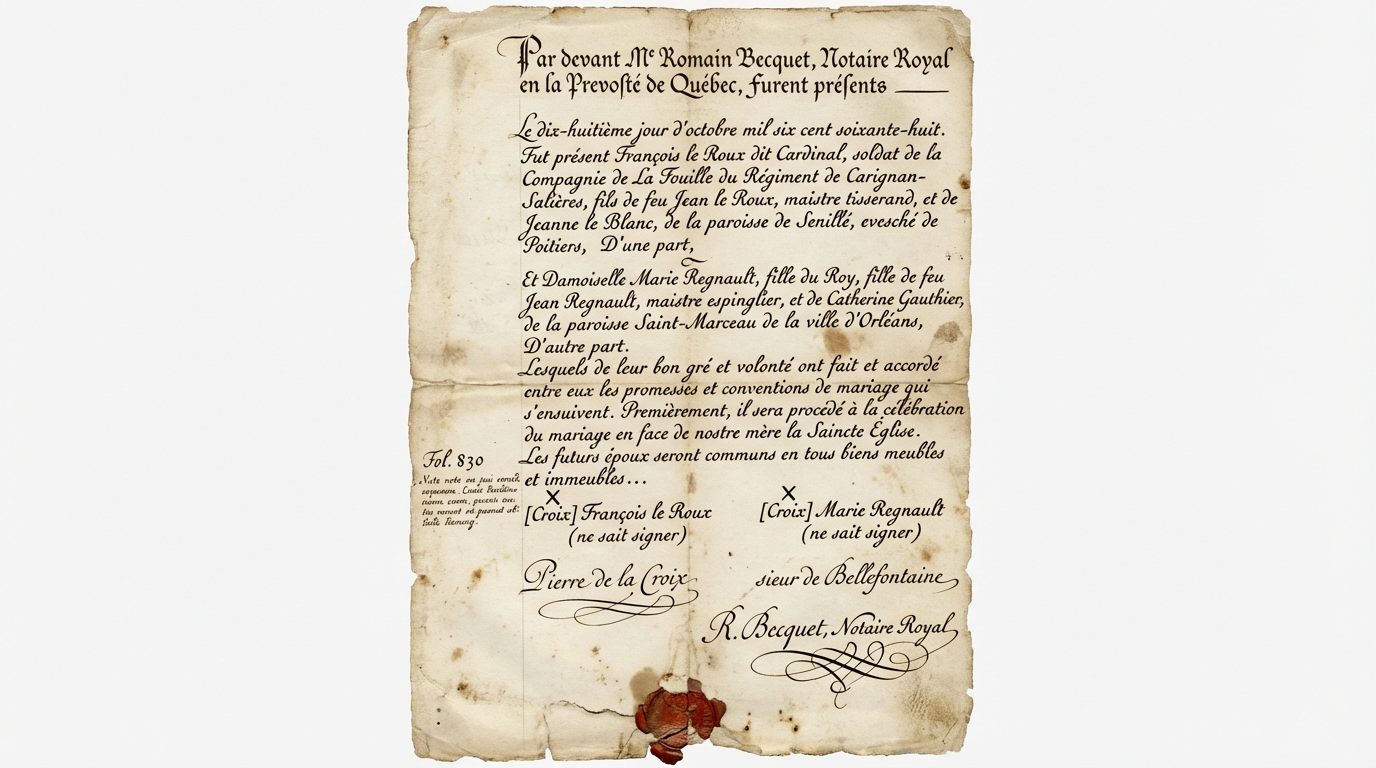 Par devant Mᵉ Romain Becquet, Notaire Royal
en la Prevosté de Québec, furent présents
Le dix-huitième jour d'octobre mil six cent soixante-huit.
Fut présent François le Roux dit Cardinal, soldat de la
Compagnie de La Fouille du Régiment de Carignan-
Salières, fils de feu Jean le Roux, maistre tisserand, et de
Jeanne le Blanc, de la paroisse de Senillé, evesché de
Poitiers, D'une part,
Et Damoiselle Marie Regnault, fille du Roy, fille de feu
Jean Regnault, maistre espinglier, et de Catherine Gauthier,
de la paroisse Saint-Marceau de la ville d'Orléans,
D'autre part.
Lesquels de leur bon gré et volonté ont fait et accordé
entre eux les promesses et conventions de mariage qui
s'ensuivent. Premièrement, il sera procédé à la célébration
du mariage en face de nostre mère la Saincte Église.
Les futurs époux seront communs en tous biens meubles
et immeubles...
Fol. 830
X X
[Croix] François le Roux [Croix] Marie Regnault
(ne sait signer) (ne sait signer)
Pierre de la Croix sieur de Bellefontaine
R. Becquet, Notaire Royal